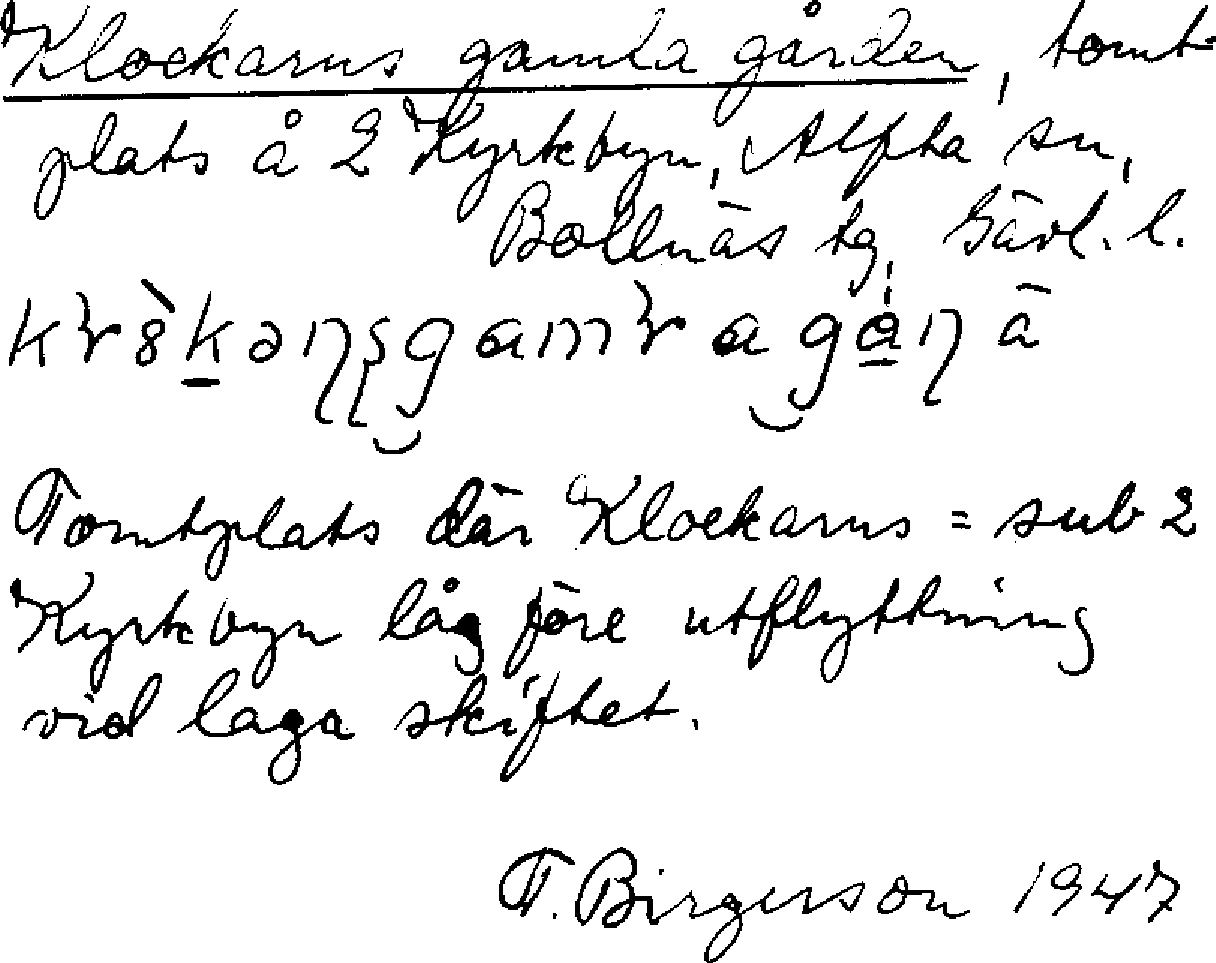 Klockarns gamla gården, tomt-
plats å 2 Kyrkbyn, Alfta sn,
Bollnäs tg, Gävl. l.
Tomtplats där Klockarns = sub 2
Kyrkbyn låg före utflyttning
vid laga skiftet.
T. Birgerson 1947